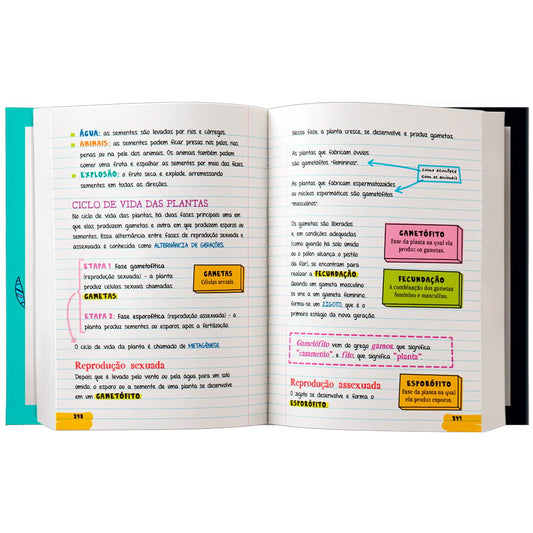 ÁGUA: as sementes são levadas por rios e córregos.
ANIMAIS: as sementes podem ficar presas nos pelos, nas
penas ou na pele dos animais. Os animais também podem
comer uma fruta e espalhar as sementes por meio das fezes.
EXPLOSÃO: o fruto seca e explode, arremessando
sementes em todas as direções.
CICLO DE VIDA DAS PLANTAS
No ciclo de vida das plantas, há duas fases principais: uma em
que elas produzem gametas e outra em que produzem esporos ou
sementes. Essa alternância entre fases de reprodução sexuada e
assexuada é conhecida como ALTERNÂNCIA DE GERAÇÕES.
ETAPA 1: Fase gametofítica
(reprodução sexuada) - a planta
produz células sexuais chamadas
GAMETAS.
GAMETAS
Células sexuais.
ETAPA 2: Fase esporofítica (reprodução assexuada) - a
planta produz sementes ou esporos após a fertilização.
O ciclo de vida da planta é chamado de METAGÊNESE.
Reprodução sexuada
Depois que é levado pelo vento ou pela água para um solo
úmido, o esporo ou a semente de uma planta se desenvolve
em um GAMETÓFITO.
248
Nessa fase, a planta cresce, se desenvolve e produz gametas.
As plantas que fabricam óvulos
são gametófitos "femininos".
como acontece
com os animais
As plantas que fabricam espermatozoides
ou núcleos espermáticos são gametófitos
"masculinos".
Os gametas são liberados
e, em condições adequadas
(como quando há solo úmido
ou o pólen alcança o pistilo
da flor), se encontram para
realizar a FECUNDAÇÃO.
Quando um gameta masculino
se une a um gameta feminino,
forma-se um ZIGOTO, que é o
primeiro estágio da nova geração.
GAMETÓFITO
Fase da planta na qual ela
produz os gametas.
FECUNDAÇÃO
A combinação dos gametas
feminino e masculino.
Gametófito vem do grego gamos, que significa
"casamento", e fito, que significa "planta".
Reprodução assexuada
O zigoto se desenvolve e forma o
ESPORÓFITO.
ESPORÓFITO
Fase da planta na qual
ela produz esporos.
249